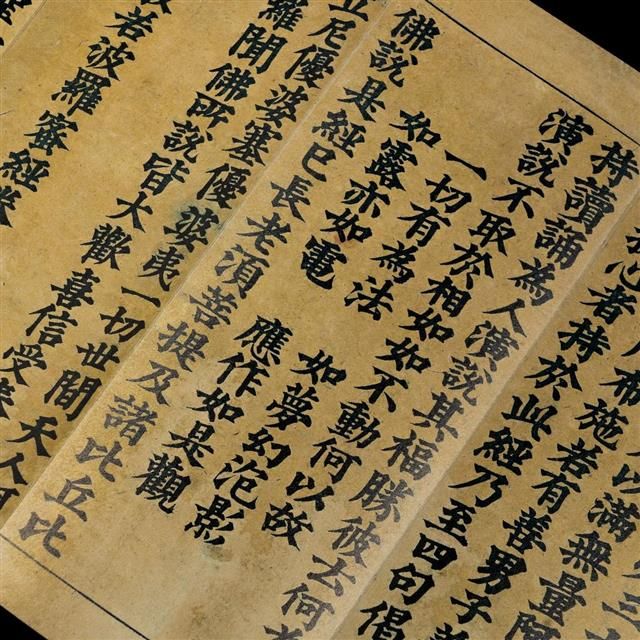 以滿無量阿
布施若有善男子善
心者持於此經乃至四句偈
持讀誦為人演說其福勝彼云何為
演說不取於相如如不動何以故
一切有為法 如夢幻泡影
如露亦如電 應作如是觀
佛說是經已長老須菩提及諸比丘比
丘尼優婆塞優婆夷一切世間天人阿
羅聞佛所說皆大歡喜信受奉
般若波羅蜜經